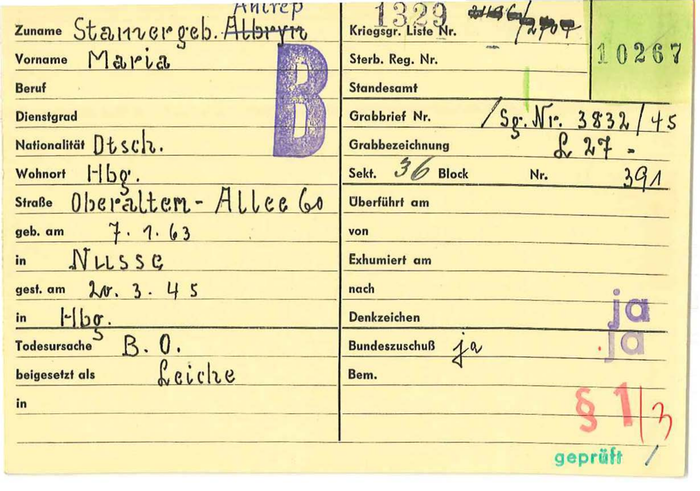 Antrep
Zuname Stamer geb. Albryn
Vorname Maria
Beruf
Dienstgrad
Nationalität Dtsch.
Wohnort Hbg.
Straße Oberalten-Allee 60
geb. am 7. 1. 63
in Nusse
gest. am 20. 3. 45
in Hbg.
Todesursache B. O.
beigesetzt als Leiche
in
B
1329
Kriegsgr. Liste Nr.
10267
Sterb. Reg. Nr.
Standesamt
Grabbrief Nr. / Sg. Nr. 3832/45
Grabbezeichnung L 27 -
Sekt. 36 Block Nr. 391
Überführt am
von
Exhumiert am
nach
Denkzeichen ja
Bundeszuschuß ja ja
Bem.
§ 1/3
geprüft /